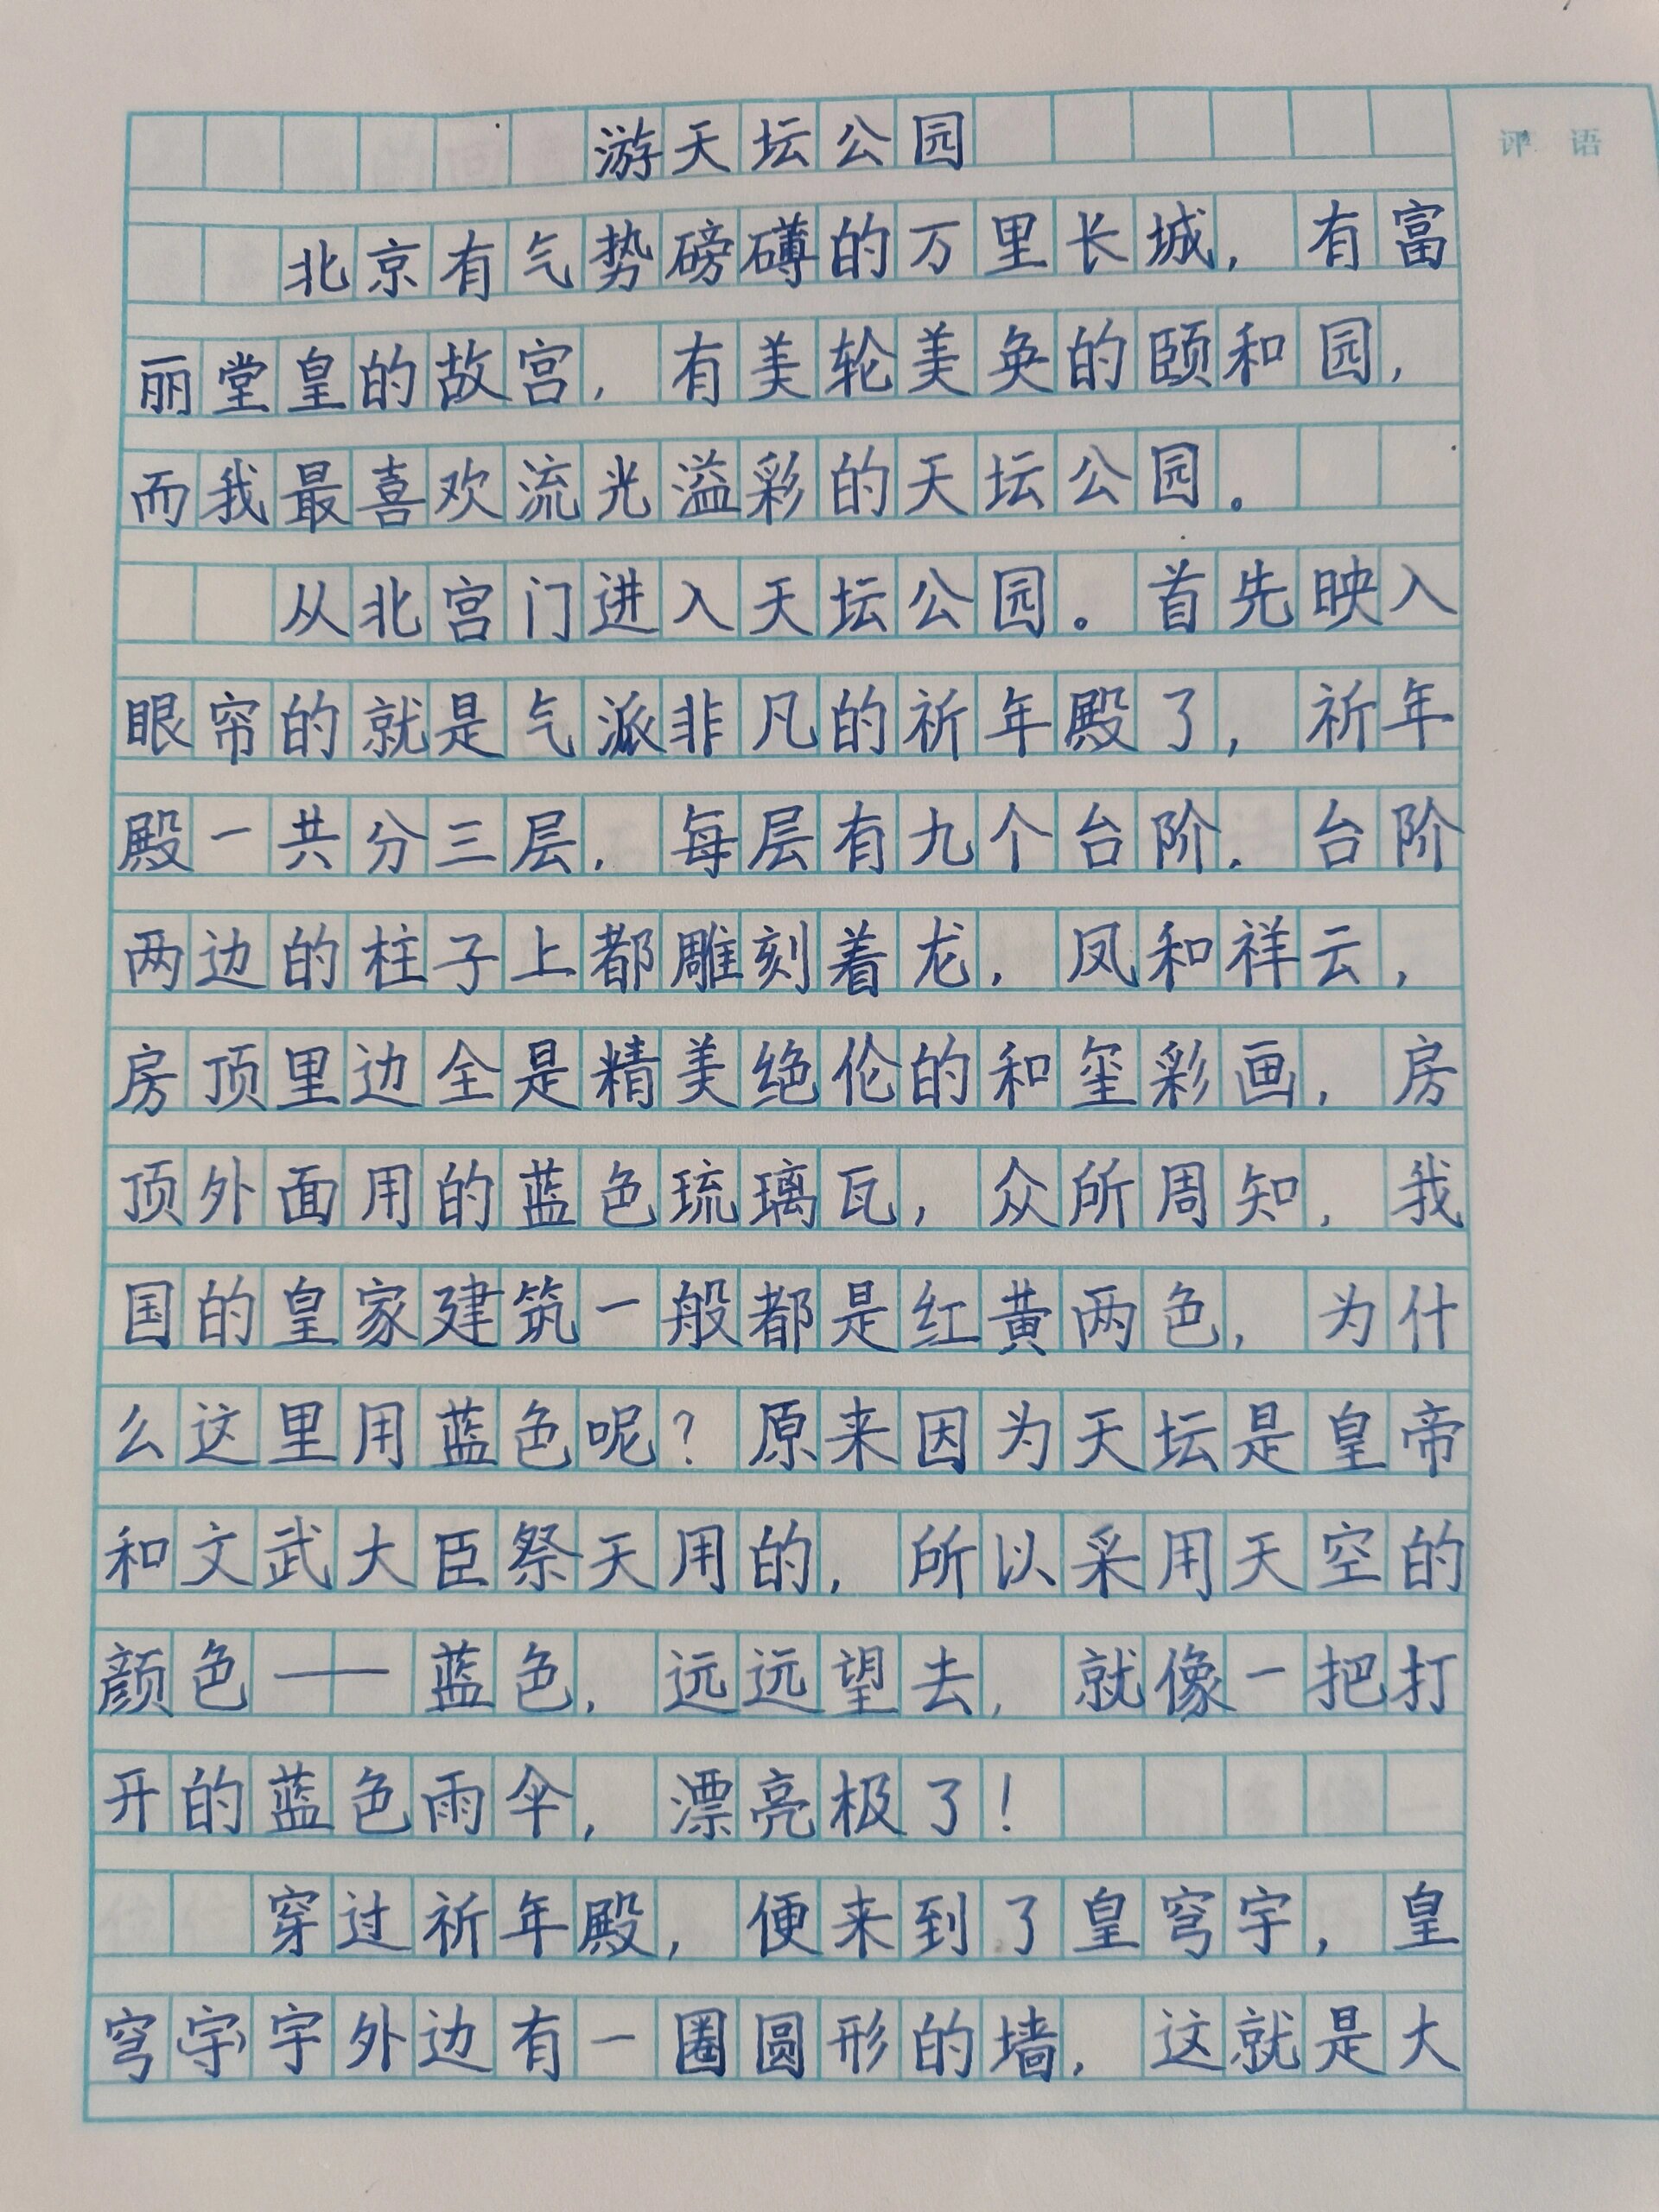 游天坛公园
评语
北京有气势磅礴的万里长城，有富
丽堂皇的故宫，有美轮美奂的颐和园，
而我最喜欢流光溢彩的天坛公园。
从北宫门进入天坛公园。首先映入
眼帘的就是气派非凡的祈年殿了，祈年
殿一共分三层，每层有九个台阶，台阶
两边的柱子上都雕刻着龙，凤和祥云，
房顶里边全是精美绝伦的和玺彩画，房
顶外面用的蓝色琉璃瓦，众所周知，我
国的皇家建筑一般都是红黄两色，为什
么这里用蓝色呢？原来因为天坛是皇帝
和文武大臣祭天用的，所以采用天空的
颜色——蓝色，远远望去，就像一把打
开的蓝色雨伞，漂亮极了！
穿过祈年殿，便来到了皇穹宇，皇
穹宇外边有一圈圆形的墙，这就是大